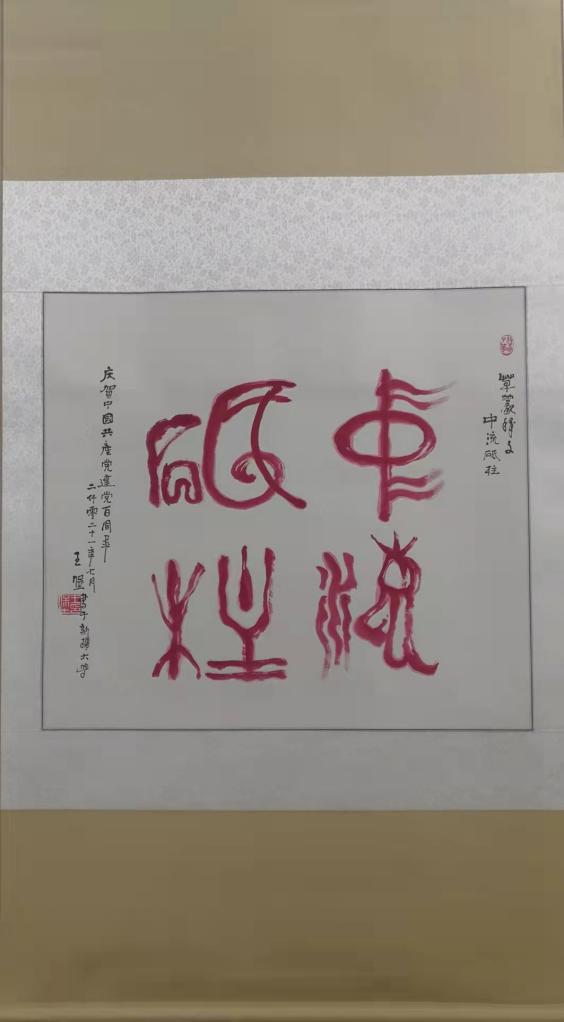 草篆释文
中流砥柱
中流
砥柱
庆贺中國共產党建党百周年
二仟零二十一年七月
王坚書于新疆大学